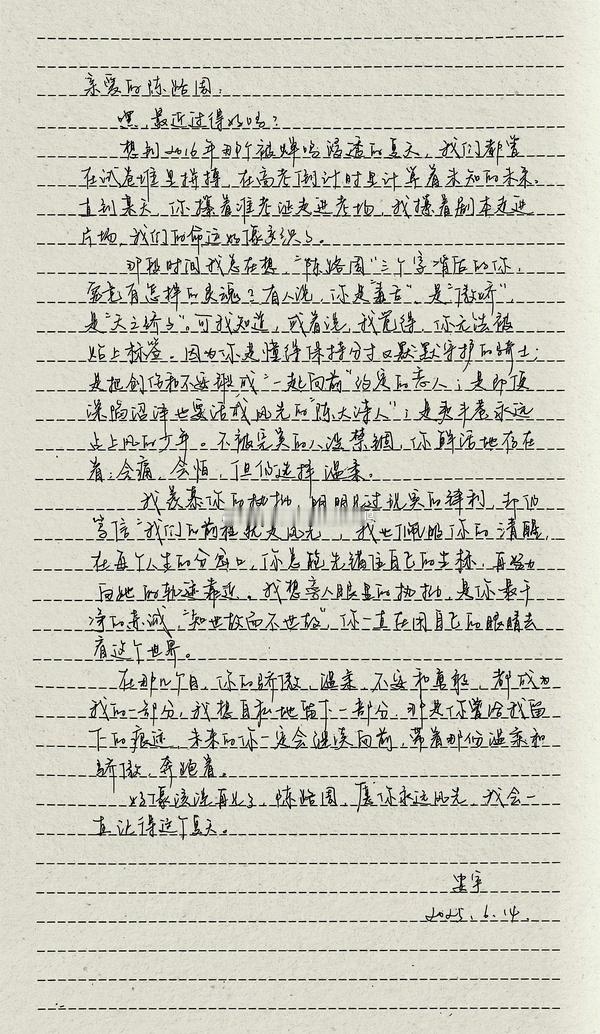 亲爱的陈路周：
嘿，最近过得好吗？
想到2016年那个被蝉鸣浸透的夏天，我们都曾
在试卷堆里拼搏，在高考倒计时里计算着未知的未来。
直到某天，你攥着准考证走进考场，我攥着剧本走进
片场，我们的命运好像交织了。
那段时间我总在想，“陈路周”三个字背后的你，
究竟有怎样的灵魂？有人说，你是“毒舌”，是“傲娇”，
是“天之骄子”。可我知道，或者说，我觉得，你无法被
贴上标签。因为你是懂得保持分寸又默默守护的骑士；
是把创伤和不安酿成“一起向前”约定的恋人；是即便
深陷沼泽也要活成风光的“陈大诗人”；是夹半卷永远
占上风的少年。不被完美的人设禁锢，你鲜活地存在
着：会痛，会怕，但仍选择温柔。
我羡慕你的执拗，明明见过现实的锋利，却仍
笃信“我们的前程就是风光”，我也佩服你的清醒，
在每个人生的分岔口，你总能先锚住自己的坐标，再努力
向她的轨迹靠近。我想旁人眼里的执拗，是你最干
净的赤诚，“知世故而不世故”，你一直在用自己的眼睛去
看这个世界。
在那几个月，你的骄傲，温柔，不安和勇敢，都成为
我的一部分，我想自私地留下一部分，那是你曾给我留
下的痕迹，未来的你一定会继续向前，带着那份温柔和
骄傲，奔跑着。
好像该说再见了，陈路周，愿你永远风光，我会一
直记得这个夏天。
2025.6.14.